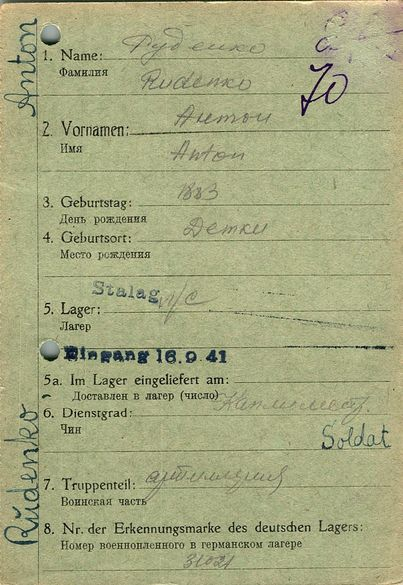 Anton
Rudenko
70
1. Name: Руденко
Фамилия Rudenko
2. Vornamen: Антон
Имя Anton
3. Geburtstag: 1883
День рождения
4. Geburtsort: Детки
Место рождения
Stalag
5. Lager:
Лагер
Eingang 16. 9. 41
5a. Im Lager eingeliefert am:
Доставлен в лагер (число)
6. Dienstgrad:
Чин
Soldat
7. Truppenteil: артиллерия
Воинская часть
8. Nr. der Erkennungsmarke des deutschen Lagers:
Номер военнопленного в германском лагере